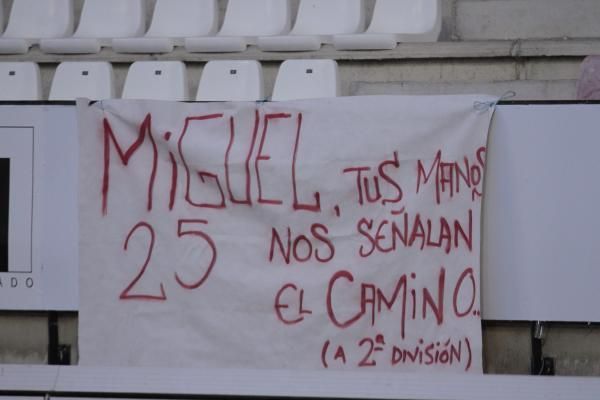 MiGUEL, TUS MANOS
25 NOS SEÑALAN
EL CAMiNO..
(A 2ª DIVISIÓN)
ADO